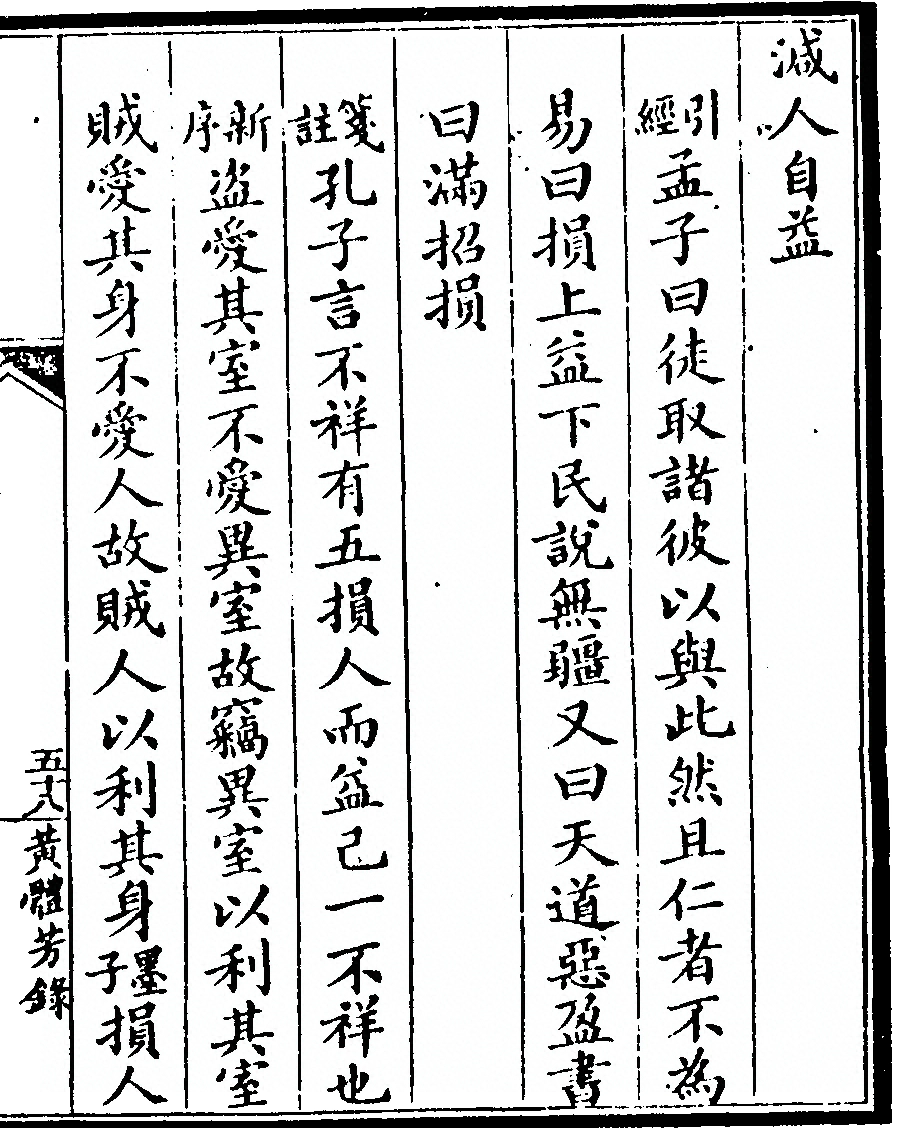 減人自益
引經孟子曰徒取諸彼以與此然且仁者不為
易曰損上益下民說無疆又曰天道惡盈書
曰滿招損
箋註孔子言不祥有五損人而益己一不祥也
新序盜愛其室不愛異室故竊異室以利其室
賊愛其身不愛人故賊人以利其身墨子損人
五十八 黃體芳錄